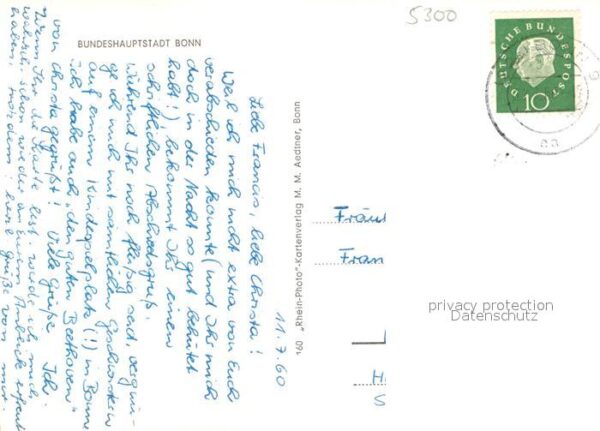 5300
BUNDESHAUPTSTADT BONN
DEUTSCHE BUNDESPOST
10
11.7.60
Liebe Franzis, liebe Christa!
Weil ich mich nicht extra von Euch
verabschieden konnte (und Ihr mich
doch in der Nacht so gut behütet
habt!) bekommt Ihr einen
schriftlichen Abschiedsgruß.
Während Ihr noch fleißig seid, vergnü-
ge ich mich mit sämtlichen Geschwistern
auf einem Kinderspielplatz (!) in Bonn
Ich habe auch "den guten Beethoven"
von Christa gegrüßt! Viele Grüße Ihr
Wenn Ihr die Karte lest, werde ich mich
wahrsch. schon wieder an Eurem Anblick erfreut
haben, trotzdem: herzl. Grüße von mir.
160 „Rhein-Photo"-Kartenverlag M. M. Aedtner, Bonn
Fräu
Fran
privacy protection
Datenschutz
H
S